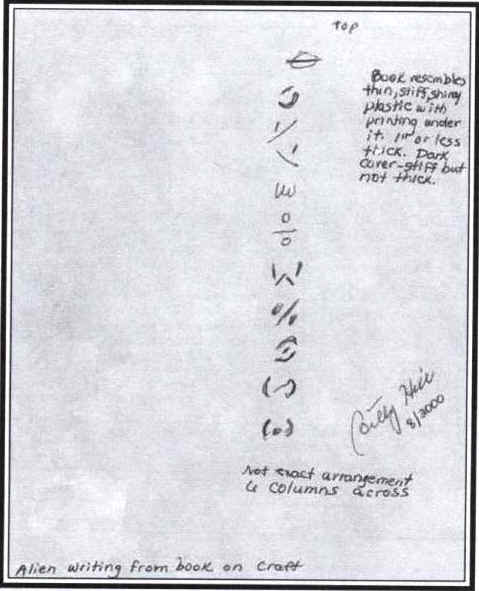 Top
Book resembles
thin, stiff, shiny
plastic with
printing under
it. 1" or less
thick. Dark
cover-stiff but
not thick.
%
Betty Hill
8/2000
Not exact arrangement
6 columns across
Alien writing from book on craft